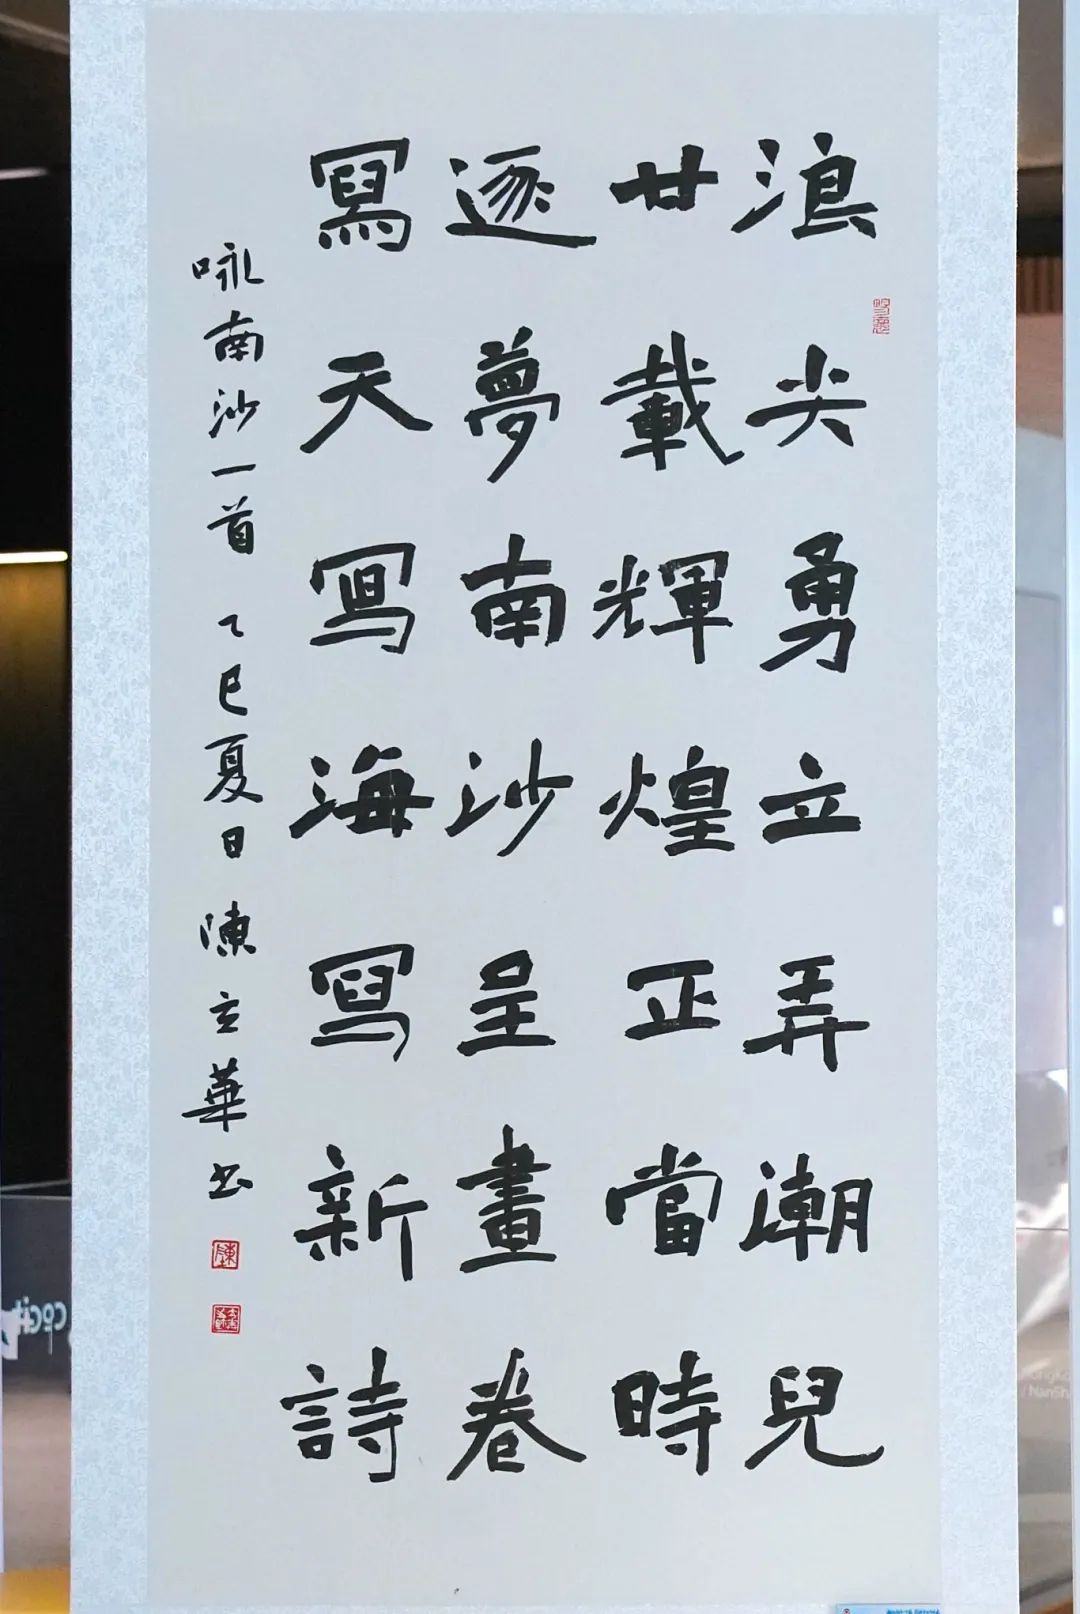 浪尖勇立弄潮兒
廿載輝煌正當時
逐夢南沙呈畫卷
寫天寫海寫新詩
咏南沙一首 乙巳夏日 陳立華书
陳